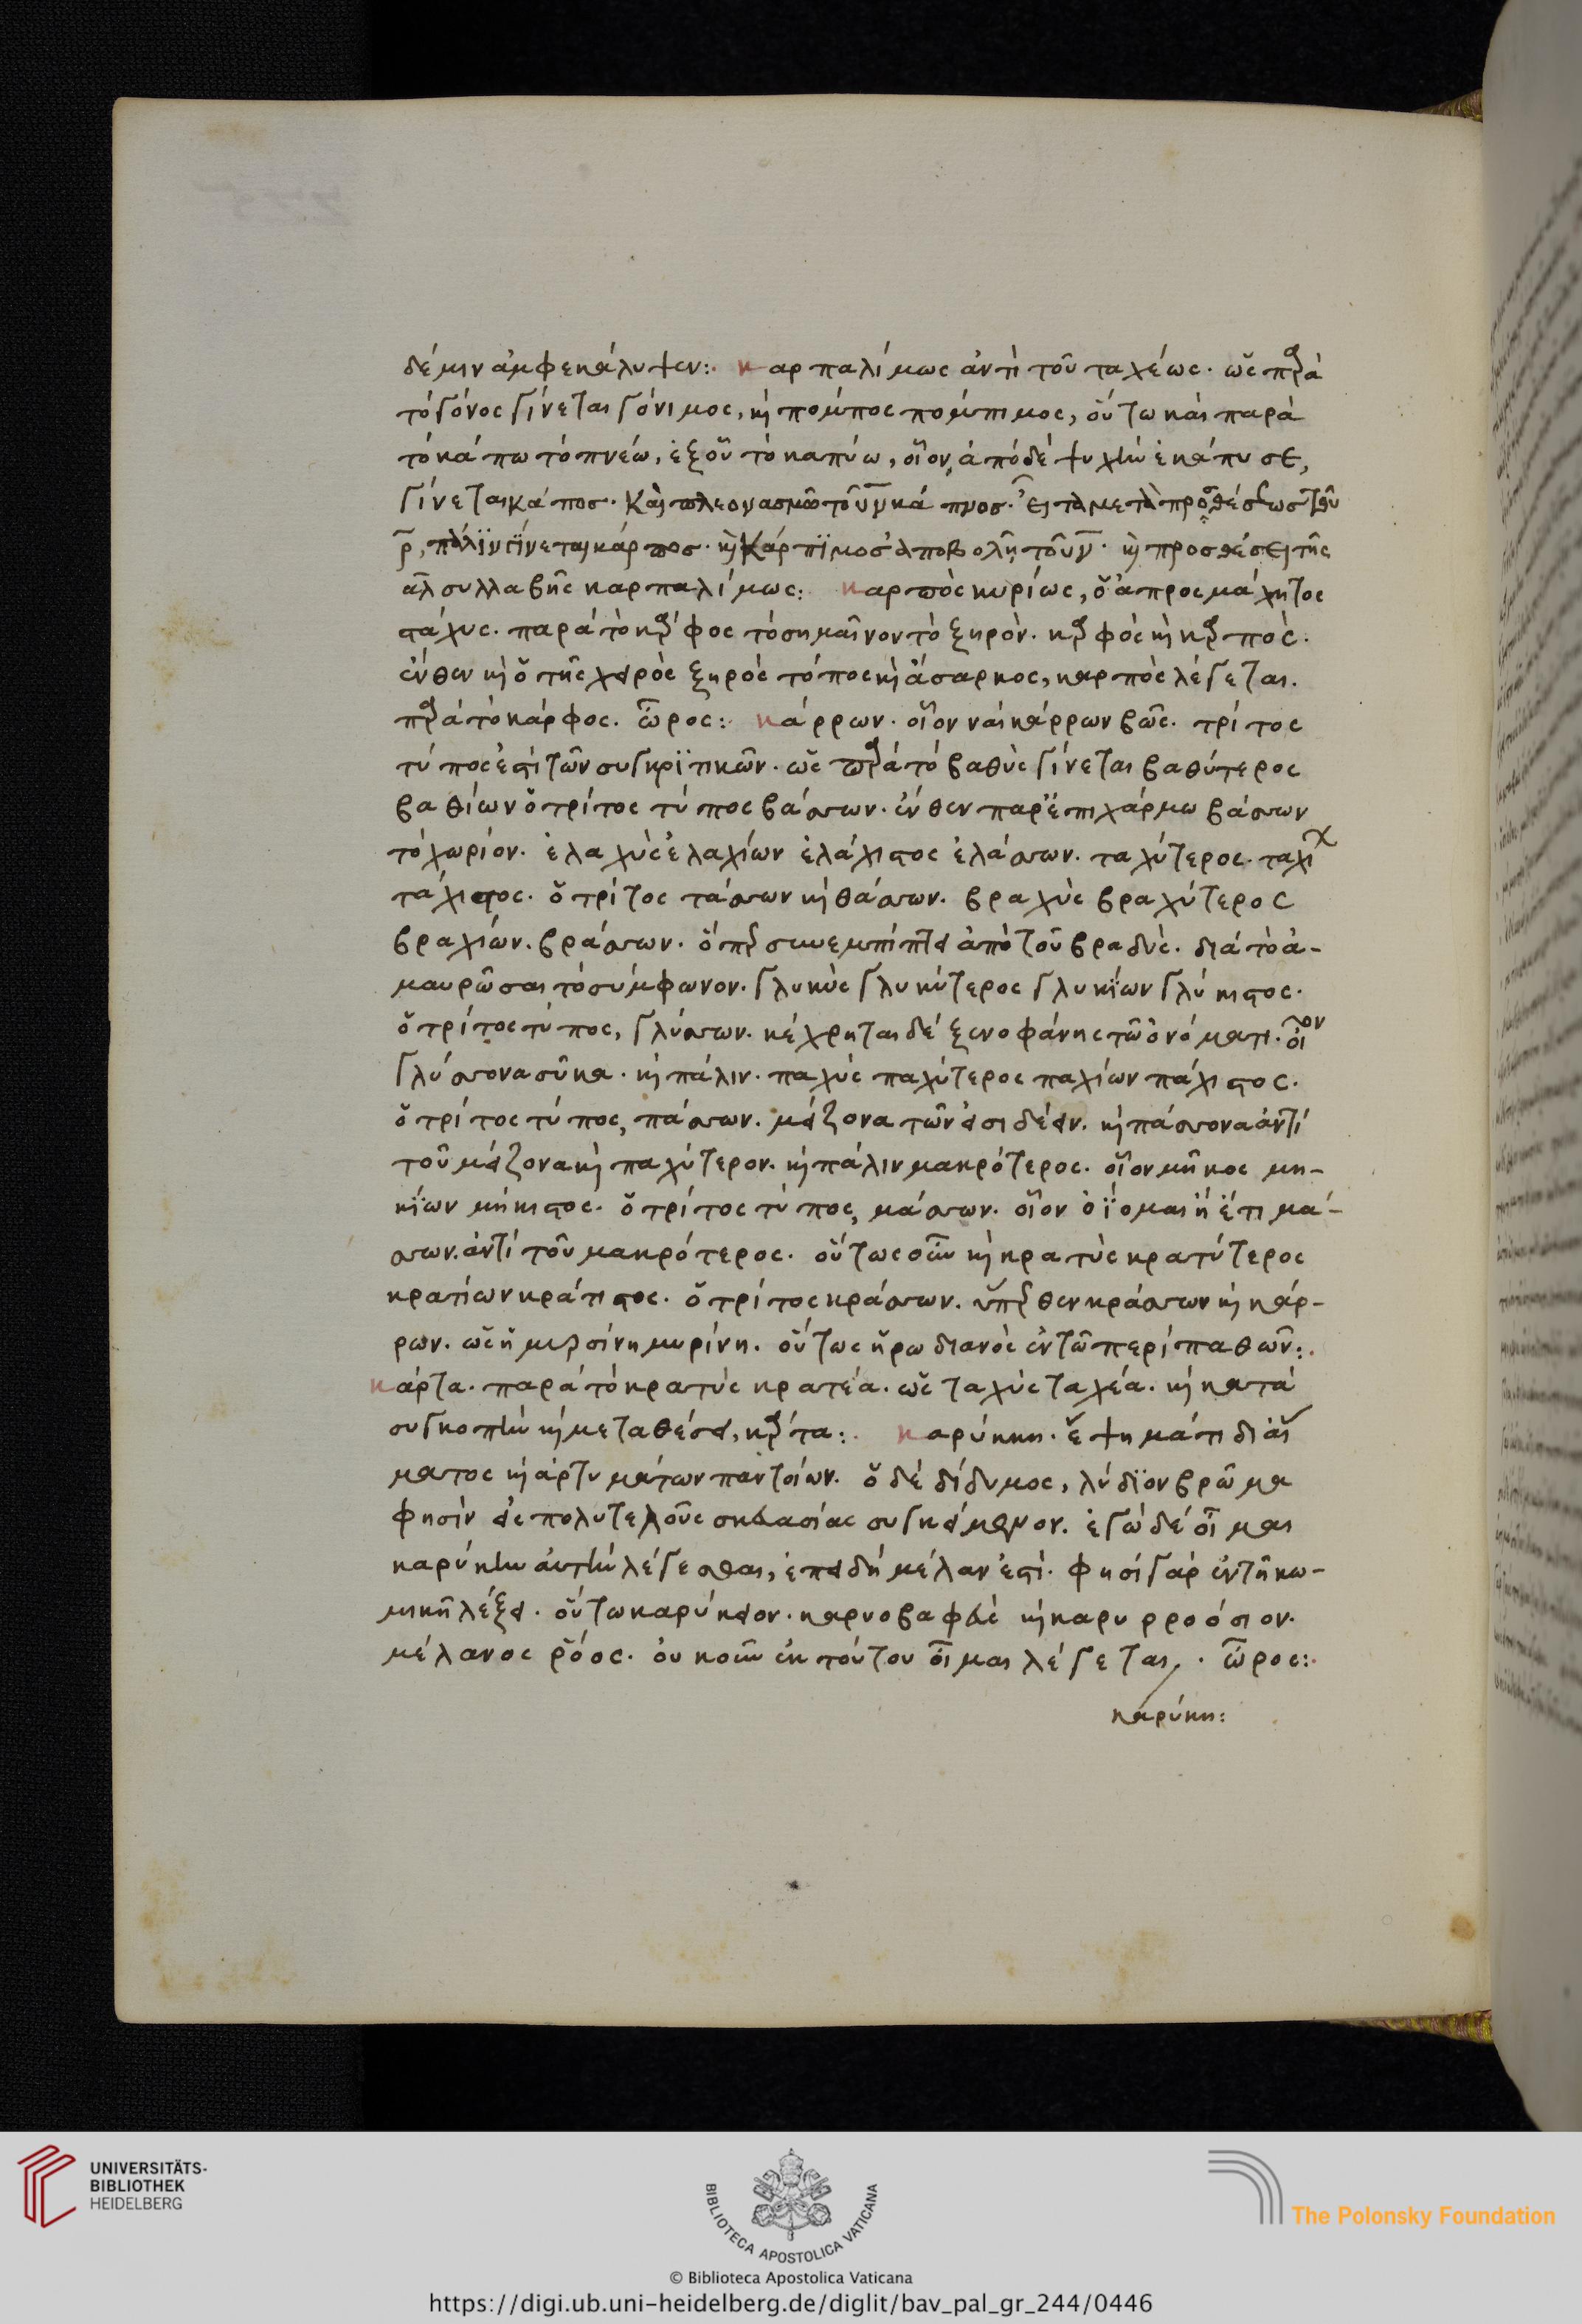 δέ μιν ἀμφεκάλυψεν:· καρπαλίμως ἀντὶ τοῦ ταχέως· ὡς παρὰ
τὸ γόνος γίνεται γόνιμος, κὶ πομπος πόμπιμος, οὕτω καὶ παρὰ
τὸ κάπω τὸ πνέω, ἐξ οὗ τὸ καπύω, οἷον, ἀπὸ δὲ ψυχὴν ἐκάπυσε,
γίνεται κάποσ· καὶ πλεονασμῶ τοῦ ν κά πνοσ· εἶτα μετὰ προσθέσεωσ τοῦ
ρ, πάλϊν γίνεται κάρποσ· κὶ κάρπϊμοσ ἀποβολῆ τοῦ ν· κὶ προσθέσει τῆς
αλ συλλαβῆς καρπαλίμως: καρπὸς κυρίως, ὁ ἀπροσμάχητος
στάχυς· παρὰ τὸ κάρφος τὸ σημαῖνον τὸ ξηρὸν· καρφὸς κὶ καρπὸς·
ἔνθεν κὶ ὁ τῆς χειρὸς ξηρὸς τόπος κὶ ἄσαρκος, καρπὸς λέγεται.
παρὰ τὸ κάρφος. ὦρος: κάρρων· οἷον ναὶ κάρρων βῶς· τρίτος
τύπος ἐστὶ τῶν συγκρϊτικῶν· ὡς παρὰ τὸ βαθὺς γίνεται βαθύτερος
βαθίων ὁ τρίτος τύπος βάσσων· ἔνθεν παρ' ἐπιχάρμω βάσσων
τὸ χωρίον· ἐλαχὺς ἐλαχίων ἐλάχιστος ἐλάσσων· ταχύτερος· ταχι
τάχιστος· ὁ τρίτος τάσσων κὶ θάσσων· βραχὺς βραχύτερος
βραχίων· βράσσων· ὅπερ συνεμπίπτει ἀπὸ τοῦ βραδὺς· διὰ τὸ ἀ-
μαυρῶσαι τὸ σύμφωνον· γλυκὺς γλυκύτερος γλυκΐων γλύκιστος·
ὁ τρίτος τύπος, γλύσσων· κέχρηται δὲ ξενοφάνης τῶ ὀνόματι· οἷον
γλύσσονα σῦκα· κὶ πάλιν· παχὺς παχύτερος παχίων πάχιστος·
ὁ τρίτος τύπος, πάσσων· μείζονα τῶν εἰσιδέειν· κὶ πάσσονα ἀντὶ
τοῦ μείζονα κὶ παχύτερον· κὶ πάλιν μακρότερος· οἷον μῆκος μη-
κΐων μήκιστος· ὁ τρίτος τύπος, μάσσων· οἷον ὀΐομαι ἢ ἔτι μά-
σσων· ἀντὶ τοῦ μακρότερος· οὕτως οὖν κὶ κρατὺς κρατύτερος
κρατίων κράτιστος· ὁ τρίτος κράσσων· ὑπερθεν κράσσων κὶ κάρ-
ρων· ὡς ἡ μυρσίνη μυρίνη· οὕτως ἡρωδιανὸς ἐν τῶ περὶ παθῶν:·
κάρτα· παρὰ τὸ κρατὺς κρατέα· ὡς ταχὺς ταχέα· κὶ κατὰ
συγκοπὴν κὶ μεταθέσει, κάρτα:· καρύκκη· ἕψημά τι δι' αἵ
ματος κὶ ἀρτυμάτων παντοίων· ὁ δὲ δίδυμος, λύδϊον βρῶμα
φησὶν ἐκ πολυτελοῦς σκευασίας συγκείμενον· ἐγὼ δὲ οἶμαι
καρύκην αὐτὴν λέγεσθαι, ἐπειδὴ μέλαν ἐστὶ· φησὶ γὰρ ἐν τῆ κω-
μικῆ λέξει· οὕτω καρύκειον· καρυοβαφὲς κὶ καρυρροόσιον·
μέλανος ῥόος· οὐκοῦν ἐκ τούτου οἶμαι λέγεται,· ὦρος:·
καρύκη:
UNIVERSITÄTS-
BIBLIOTHEK
HEIDELBERG
BIBLIOTECA APOSTOLICA VATICANA
The Polonsky Foundation
© Biblioteca Apostolica Vaticana
https://digi.ub.uni-heidelberg.de/diglit/bav_pal_gr_244/0446